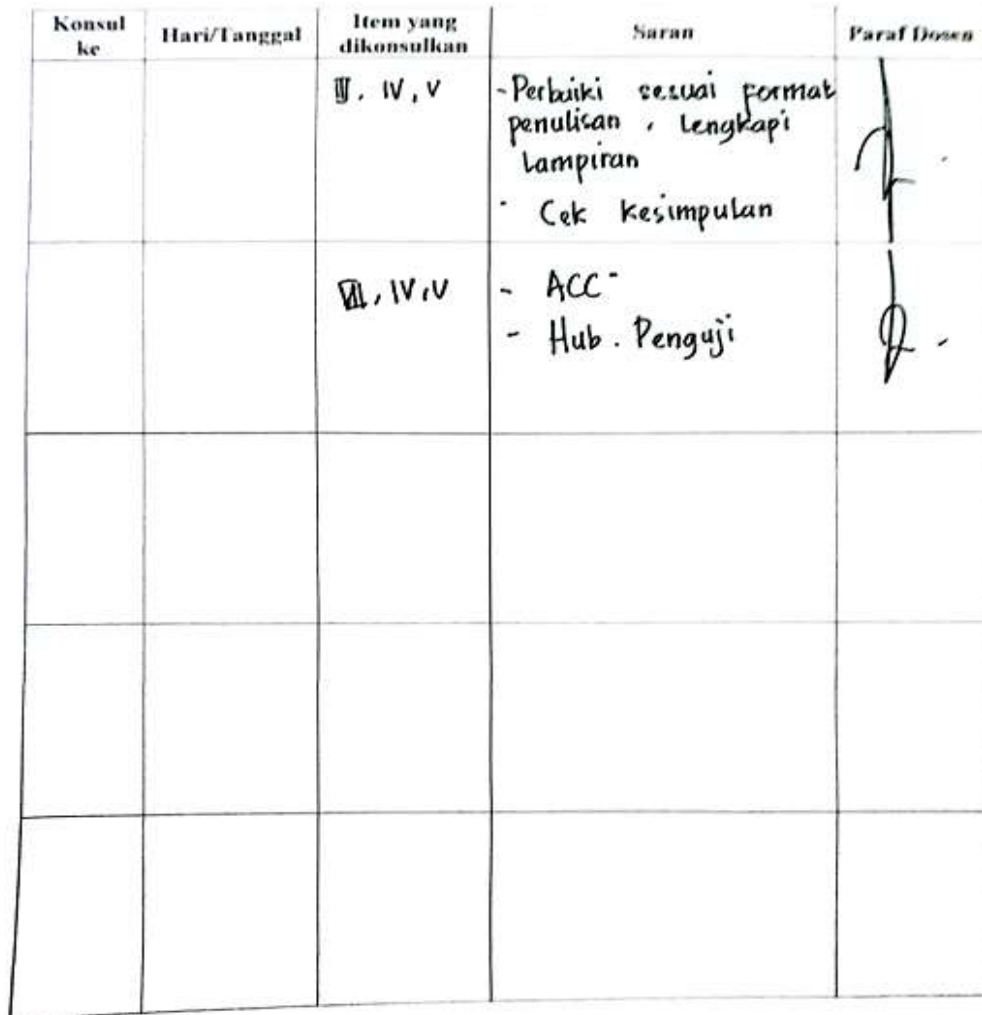 Konsul ke
Hari/Tanggal
Item yang dikonsulkan
Saran
Paraf Dosen
III. IV, V
-Perbaiki sesuai format
penulisan, Lengkapi
Lampiran
- Cek kesimpulan
III, IV, V
- ACC -
- Hub. Penguji